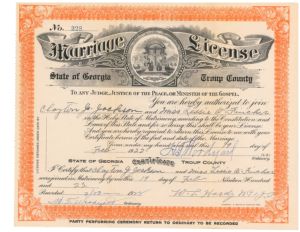 No. 328
Marriage License
State of Georgia Troup County
TO ANY JUDGE, JUSTICE OF THE PEACE, OR MINISTER OF THE GOSPEL.
You are hereby authorized to join
Clayton J. Jackson and Miss
in the Holy State of Matrimony according to the Constitution and
Laws of this State and for so doing this shall be your License.
And you are hereby required to return this License to me with your
Certificate hereon of the fact and date of the Marriage.
Given under my hand and seal this day of
Feb 1922
STATE OF GEORGIA Certificate TROUP COUNTY
I Certify that Clayton J. Jackson and Miss
were joined in Matrimony by me this day of Feb. Nineteen Hundred
and 22
Recorded
PARTY PERFORMING CEREMONY RETURN TO ORDINARY TO BE RECORDED